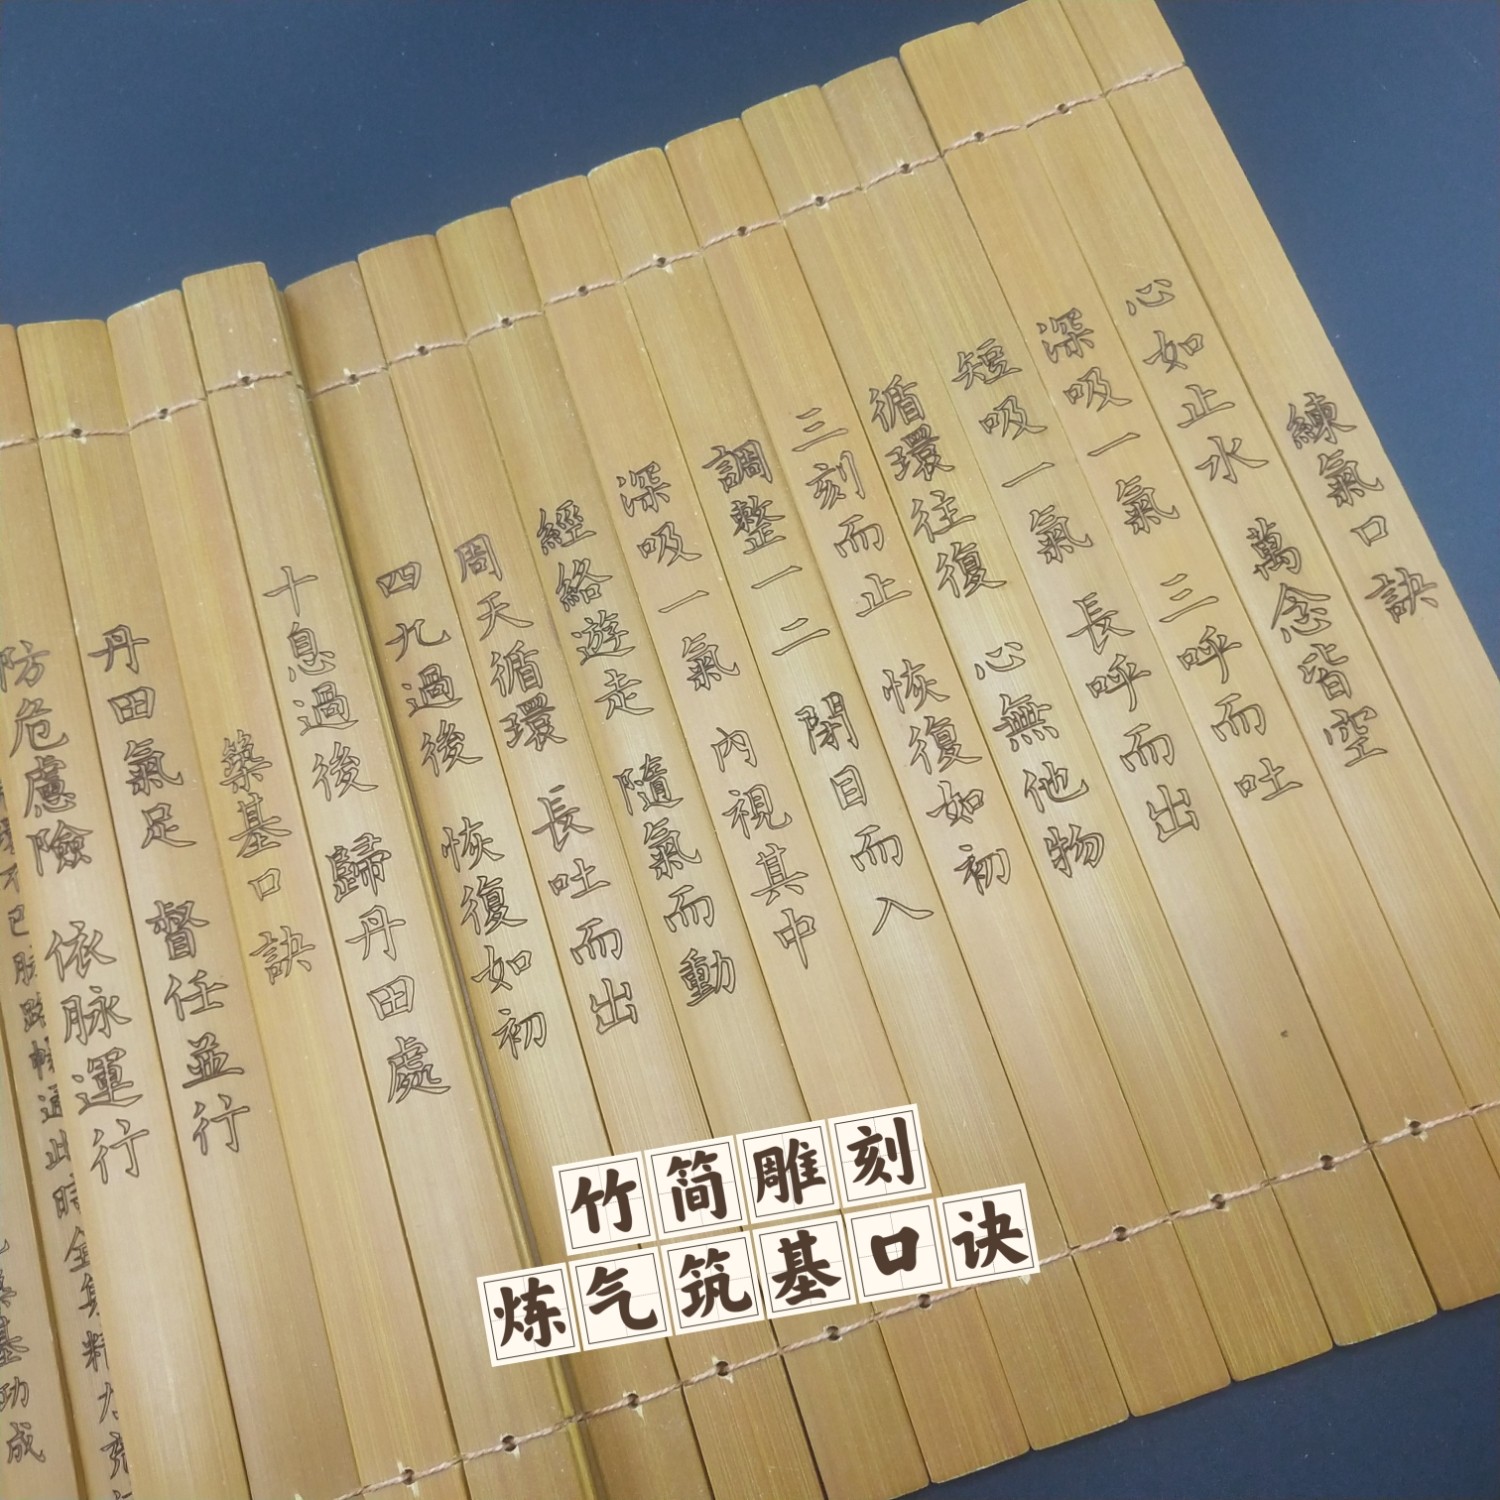 練氣口訣
心如止水 萬念皆空
深吸一氣 三呼而吐
短吸一氣 長呼而出
循環往復 心無他物
三刻而止 恢復如初
調整一二 閉目而入
深吸一氣 內視其中
經絡遊走 隨氣而動
周天循環 長吐而出
四九過後 恢復如初
十息過後 歸丹田處
築基口訣
丹田氣足 督任並行
防危慮險 依脉運行
通此時全
基功成
竹简雕刻
炼气筑基口诀